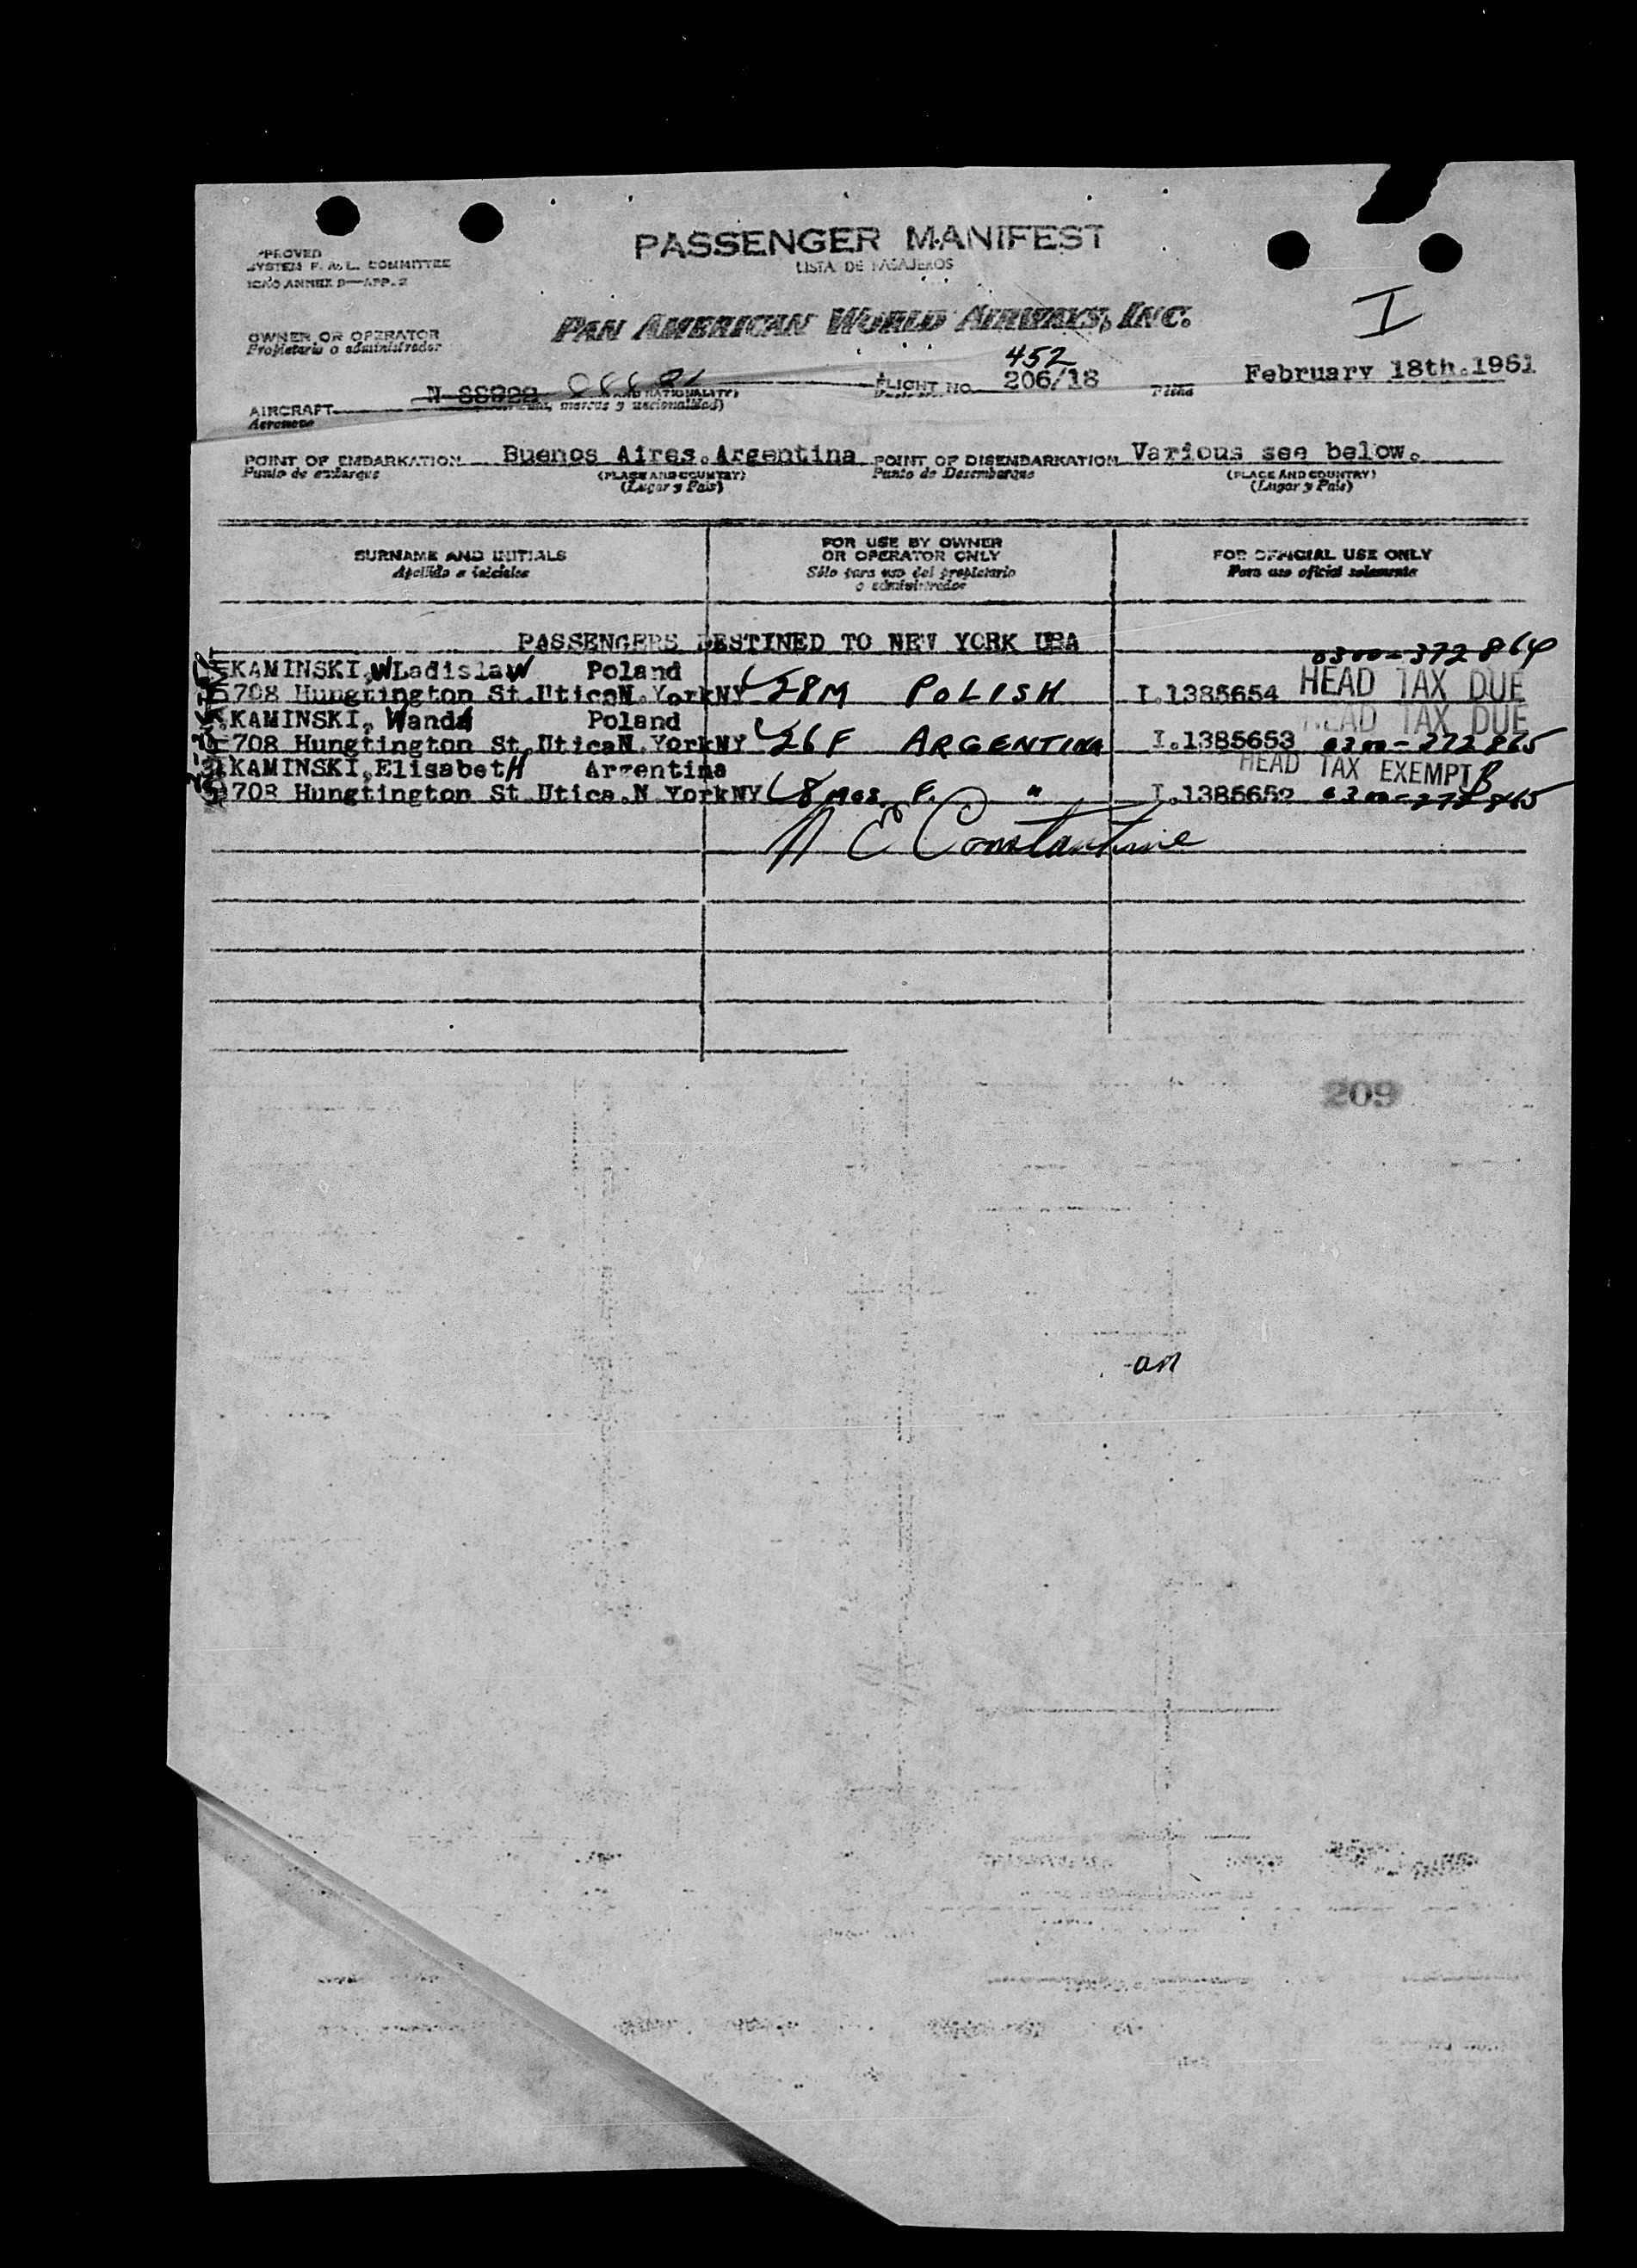 PASSENGER MANIFEST
LISTA DE PASAJEROS
APPROVED
SYSTEM F. A. L. COMMITTEE
ICAO ANNEX 9—APP. 2
I
PAN AMERICAN WORLD AIRWAYS, INC.
OWNER OR OPERATOR
Propietario o administrador
452
AIRCRAFT
Aeronave
FLIGHT NO. 206/18
February 18th.1951
POINT OF EMBARKATION Buenos Aires.Argentina POINT OF DISEMBARKATION Various see below.
Punto de embarque (PLACE AND COUNTRY) Punto de Desembarque (PLACE AND COUNTRY)
(Lugar y Pais) (Lugar y Pais)
SURNAME AND INITIALS
Apellido e iniciales
FOR USE BY OWNER
OR OPERATOR ONLY
Sólo para uso del propietario
o administrador
FOR OFFICIAL USE ONLY
Para uso oficial solamente
PASSENGERS DESTINED TO NEW YORK USA
0300-372864
KAMINSKI,WLadislaW Poland
HEAD TAX DUE
1708 Hungtington St.UticaN.YorkNY 28M POLISH I.1385654
KAMINSKI, WandA Poland
HEAD TAX DUE
1708 Hungtington St.UticaN.YorkNY 26F ARGENTINA I.1385653
KAMINSKI,ElisabetH Argentina
HEAD TAX EXEMPT
1708 Hungtington St Utica.N YorkNY 8 mos. F. " I.1385652
N E Constantine
209